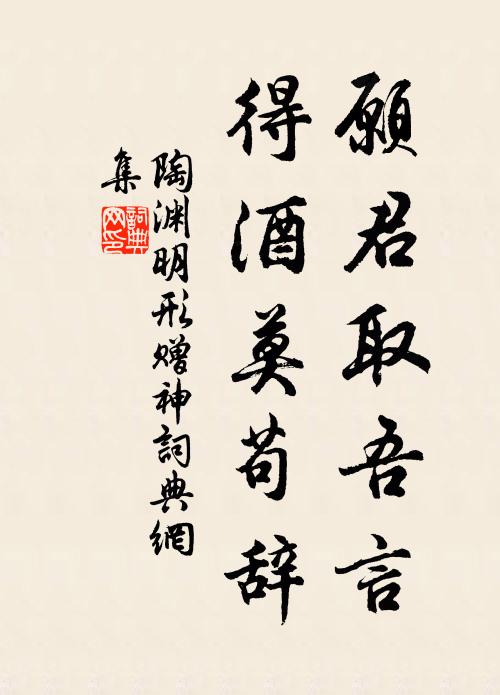 願君取吾言
得酒莫苟辞
陶渊明形赠神詞典網
集
詞典
网印